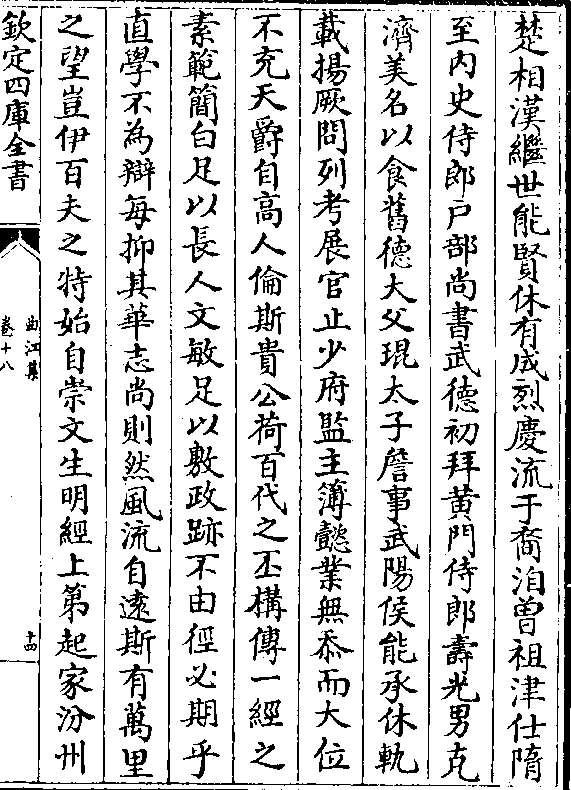 楚相漢繼世能賢休有成烈慶流于裔洎曽祖津仕隋
至内史侍郎户部尚書武德初拜黄門侍郎壽光男克
濟美名以食舊德大父琨太子詹事武陽侯能承休軌
載揚厥問列考展官止少府監主簿懿業無忝而大位
不充天爵自高人倫斯貴公荷百代之丕構傳一經之
素範簡白足以長人文敏足以敷政跡不由徑必期乎
直學不為辯每抑其華志尚則然風流自遠斯有萬里
之望豈伊百夫之特始自崇文生明經上第起家汾州
欽定四庫全書
曲江集
卷十八
十四